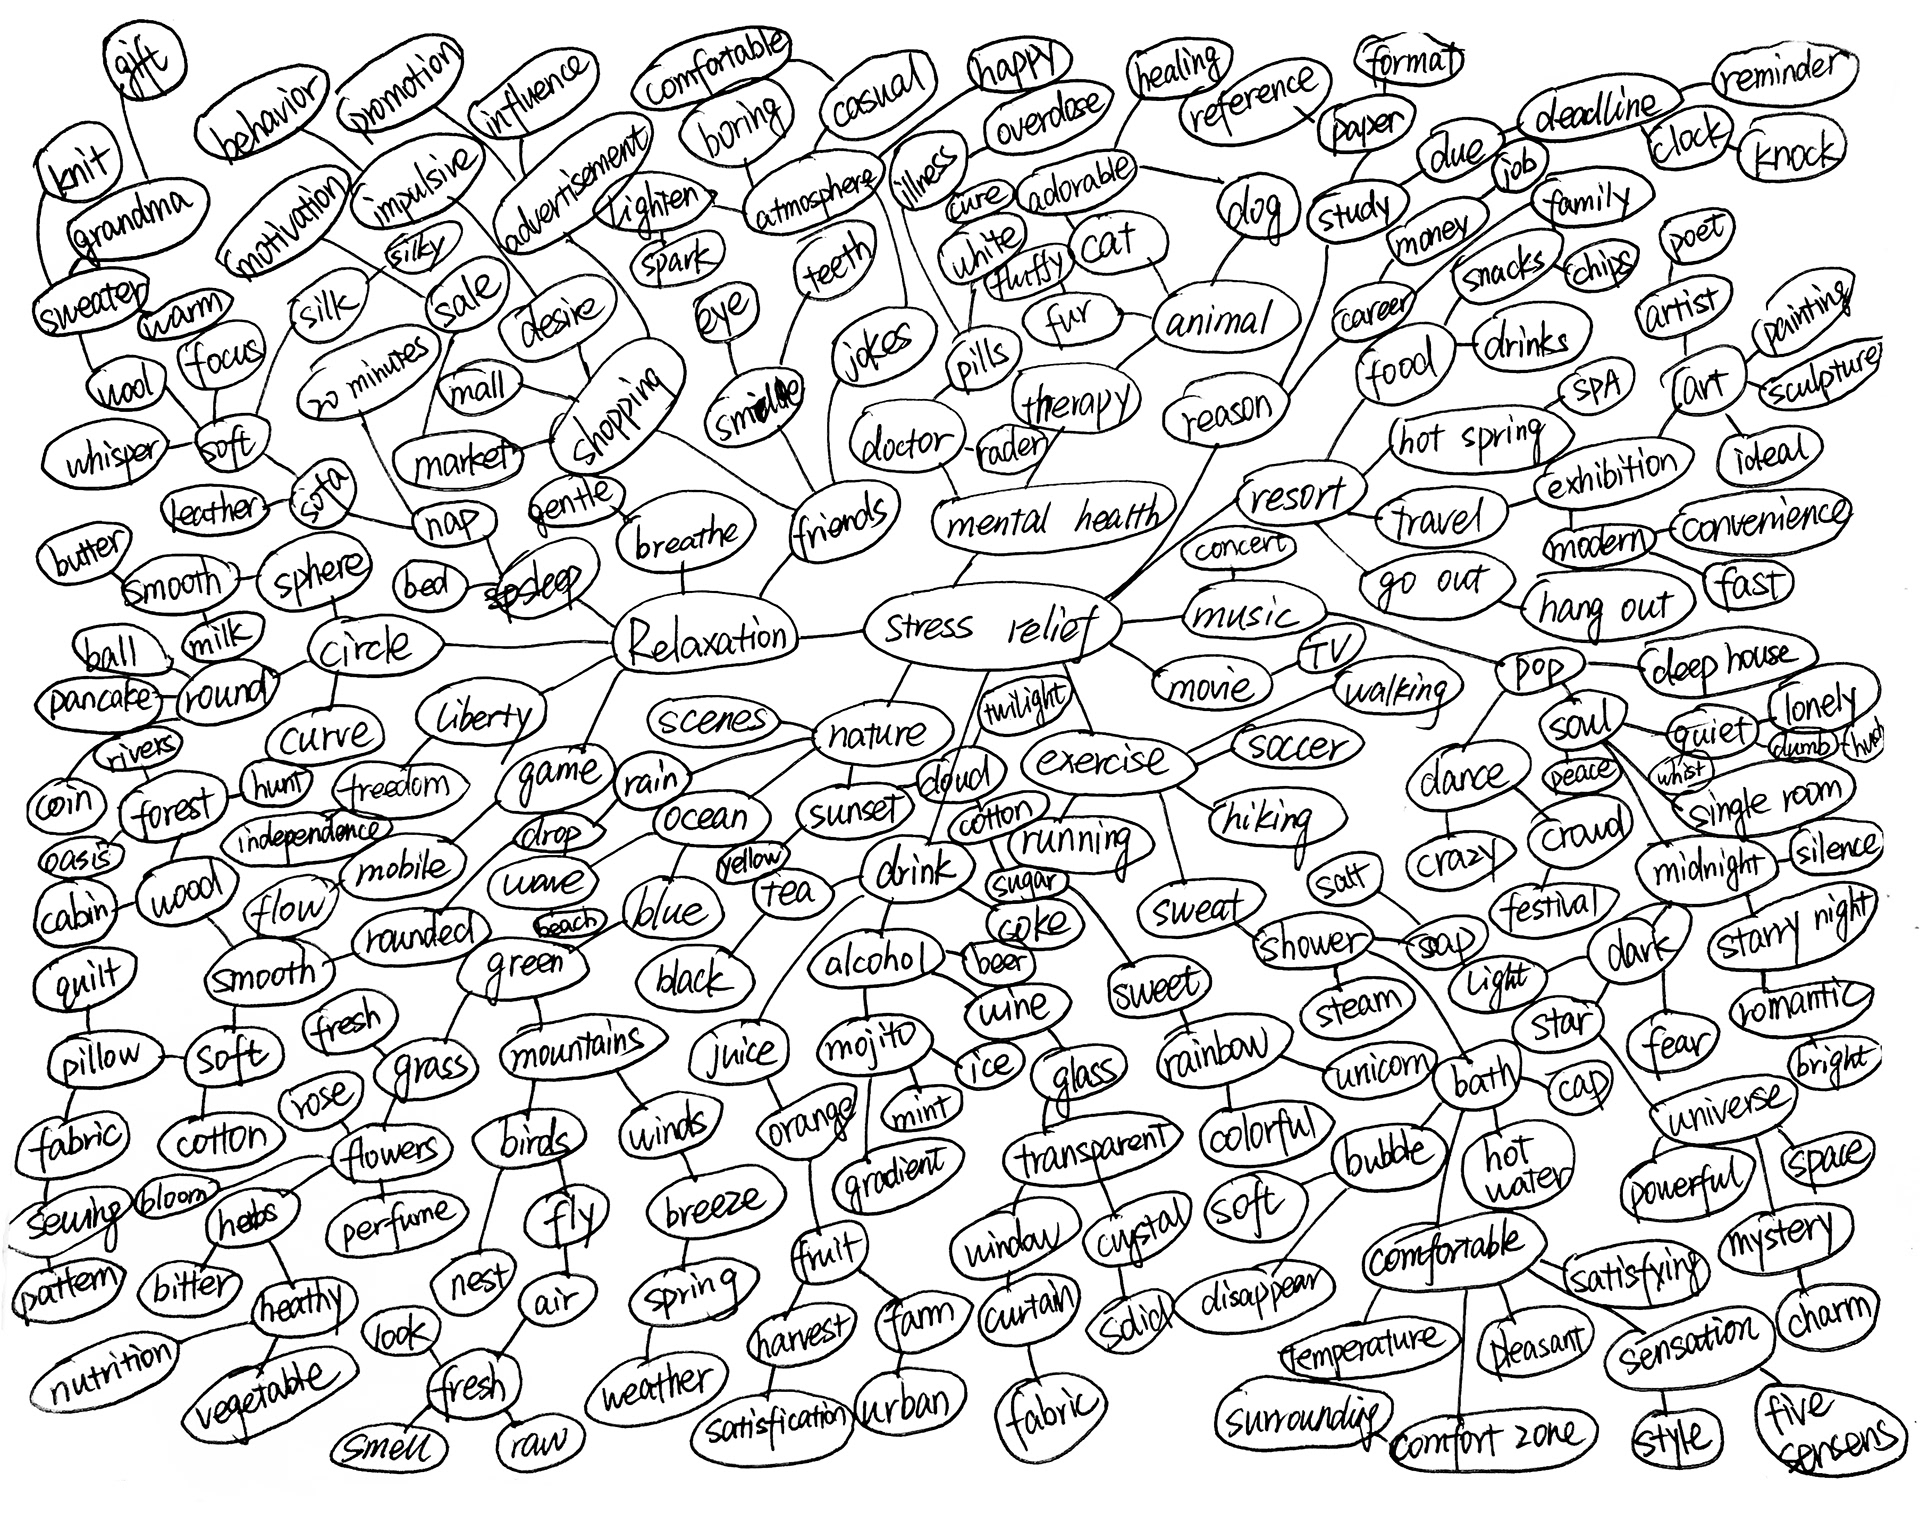 gift
knit
grandma
sweater
warm
wool
focus
soft
whisper
leather
sofa
behavior
promotion
influence
motivation
impulsive
advertisement
silky
silk
sale
desire
20 minutes
mall
market
shopping
nap
gentle
breathe
bed
sleep
comfortable
boring
casual
lighten
spark
atmosphere
teeth
eye
smile
jokes
friends
happy
overdose
illness
cure
adorable
white
fluffy
cat
fur
pills
doctor
rader
therapy
mental health
healing
reference
format
paper
dog
animal
study
due
deadline
reminder
clock
knock
job
money
family
snacks
chips
career
food
drinks
reason
poet
artist
painting
art
sculpture
ideal
SPA
hot spring
exhibition
resort
travel
modern
convenience
fast
go out
hang out
concert
music
movie
TV
walking
butter
smooth
sphere
milk
circle
ball
pancake
round
curve
Relaxation
stress relief
rivers
coin
forest
hunt
oasis
wood
cabin
liberty
freedom
independence
game
mobile
flow
rounded
smooth
quilt
pillow
soft
cotton
fabric
sewing
pattern
scenes
nature
rain
drop
ocean
wave
beach
blue
green
sunset
cloud
twilight
cotton
exercise
running
soccer
hiking
sweat
yellow
tea
drink
sugar
coke
black
alcohol
beer
wine
sweet
juice
mojito
ice
mint
gradient
glass
orange
fresh
grass
mountains
rose
flowers
bloom
herbs
perfume
bitter
heathy
nutrition
vegetable
birds
winds
nest
fly
air
look
fresh
smell
raw
breeze
spring
weather
fruit
harvest
farm
satisfication
urban
transparent
window
crystal
curtain
solid
fabric
rainbow
unicorn
colorful
pop
deep house
soul
quiet
lonely
dumb
hush
whist
peace
single room
dance
crowd
crazy
festival
midnight
silence
starry night
romantic
salt
shower
soap
steam
dark
light
star
fear
bright
bath
cap
universe
bubble
hot
water
soft
disappear
powerful
space
mystery
charm
comfortable
satisfying
temperature
pleasant
sensation
surrounding
comfort zone
style
five
sensens